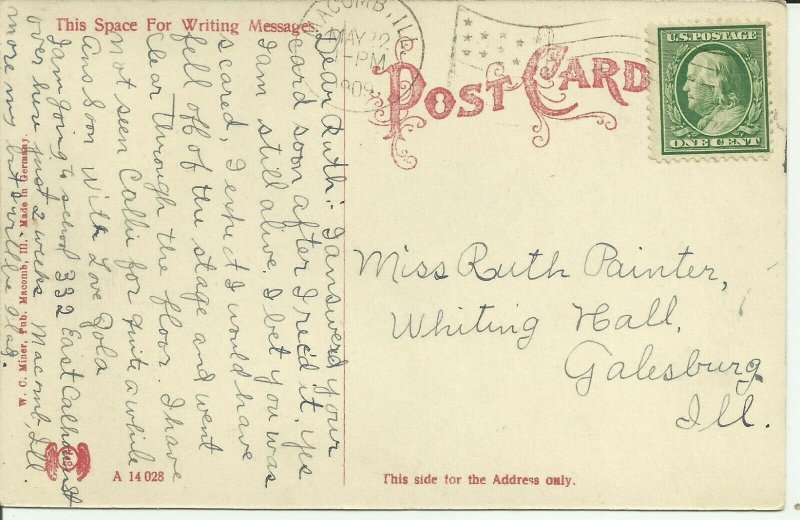 This Space For Writing Messages
MACOMB, ILL.
MAY 22
-PM
1909
POST CARD
U.S. POSTAGE
ONE CENT
Dear Ruth:- I answered your
card soon after I rec'd it. Yes
I am still alive. I bet you was
scared, I expect I would have
fell off of the stage and went
clear through the floor. I have
not seen Callie for quite a while
Ans Soon With Love Zola
I am going to school 332 East Calhoun St
over here just 2 weeks Macomb, Ill.
more my but will be glad.
Miss Ruth Painter,
Whiting Hall,
Galesburg
Ill.
W. C. Miner, Pub. Macomb, Ill. Made in Germany.
A 14028
This side for the Address only.